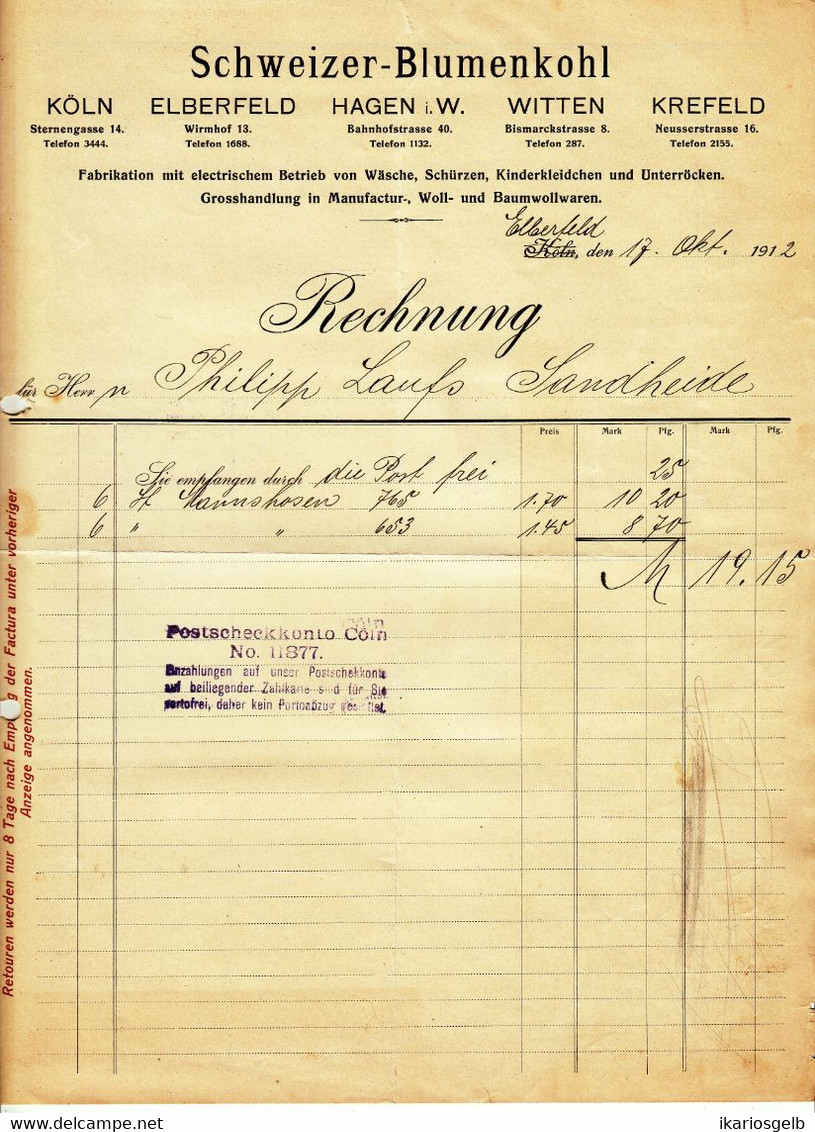 Schweizer-Blumenkohl
KÖLN ELBERFELD HAGEN i. W. WITTEN KREFELD
Sternengasse 14. Wirmhof 13. Bahnhofstrasse 40. Bismarckstrasse 8. Neusserstrasse 16.
Telefon 3444. Telefon 1688. Telefon 1132. Telefon 287. Telefon 2155.
Fabrikation mit electrischem Betrieb von Wäsche, Schürzen, Kinderkleidchen und Unterröcken.
Grosshandlung in Manufactur-, Woll- und Baumwollwaren.
Elberfeld
Köln, den 17. Okt. 1912
Rechnung
für Herrn Philipp Laufs Sandheide
Preis Mark Pfg. Mark Pfg.
Sie empfangen durch die Post frei 25
6 Mannshosen 765 1.70 10 20
6 " " 653 1.45 8 70
M 19.15
Postscheckkonto Cöln
No. 11877.
Einzahlungen auf unser Postschekkonto
auf beiliegender Zahlkarte sind für Sie
portofrei, daher kein Portoabzug gestattet.
Retouren werden nur 8 Tage nach Empfang der Factura unter vorheriger
Anzeige angenommen.
delcampe.net
ikariosgelb